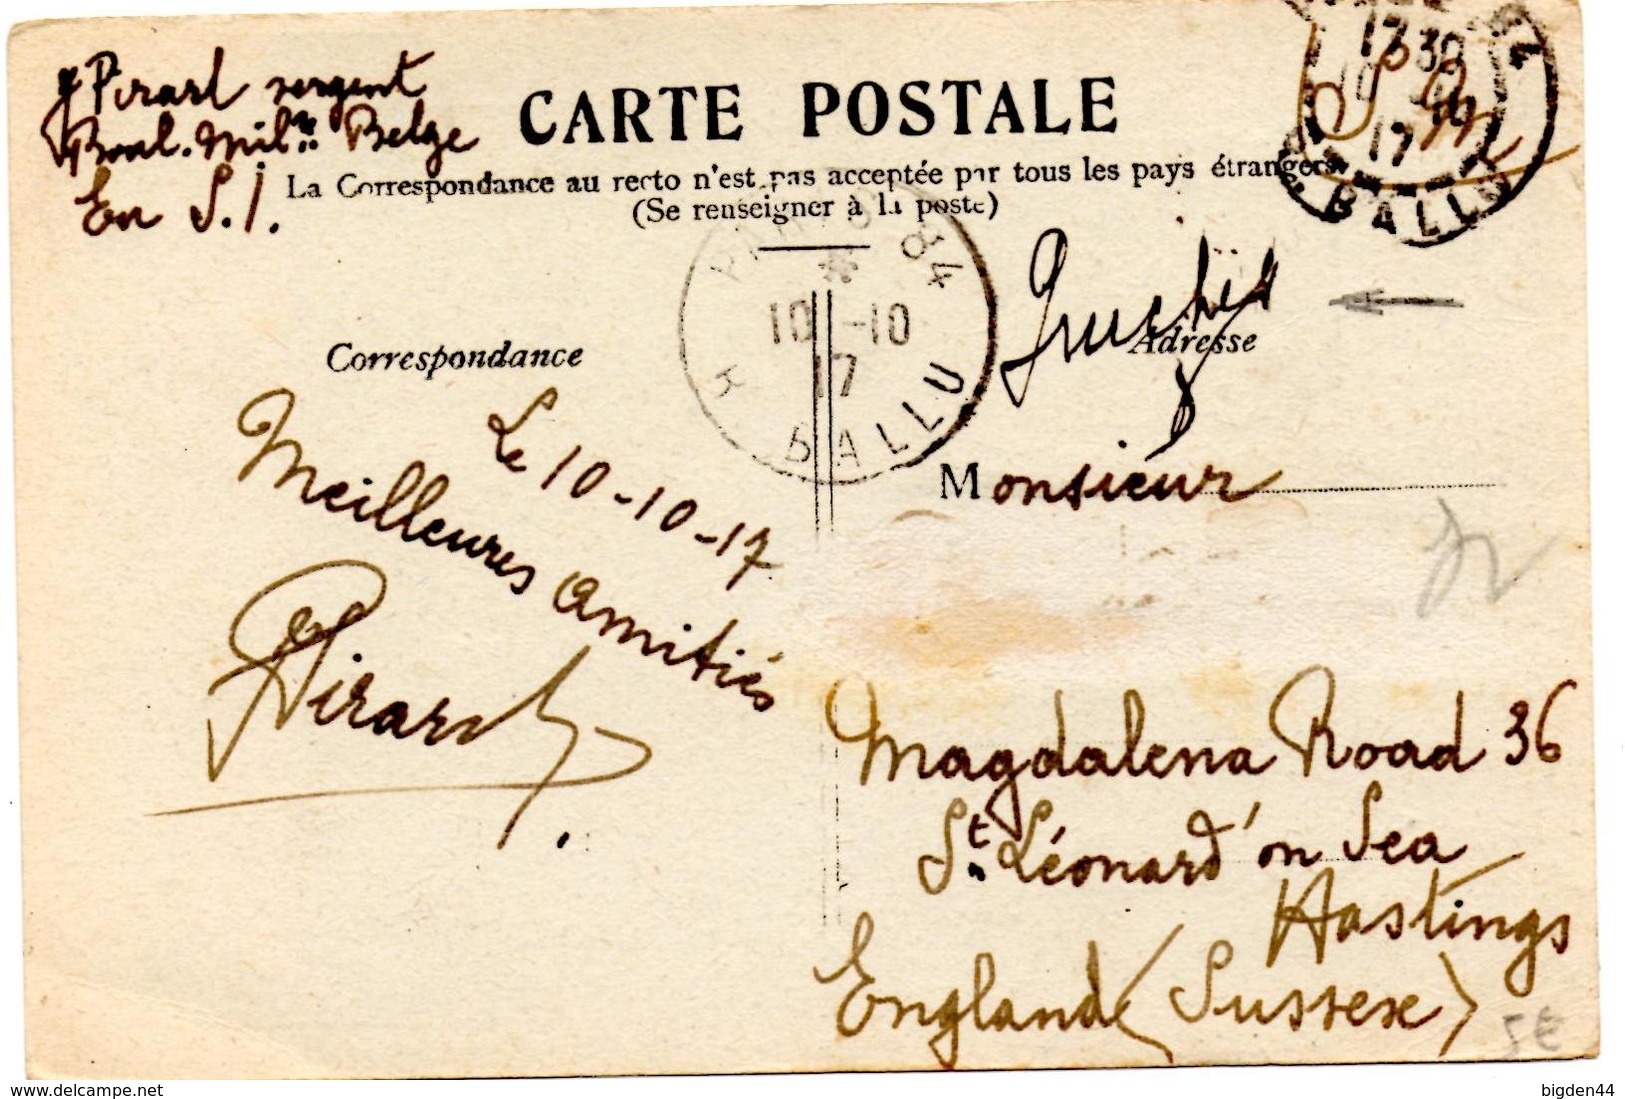 Pirard sergent
Boul. Mil.re Belge
En S.I.
CARTE POSTALE
La Correspondance au recto n'est pas acceptée par tous les pays étrangers
(Se renseigner à la poste)
17 30
10 - 10
17
BALLU
PARIS 84
10 -10
17
R BALLU
Correspondance
Adresse
Le 10-10-17
Meilleures amitiés
Pirard
Monsieur
Magdalena Road 36
St. Léonard' on Sea
Hastings
England (Sussex)
5€
www.delcampe.net
bigden44